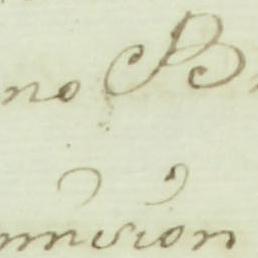 no B
mision